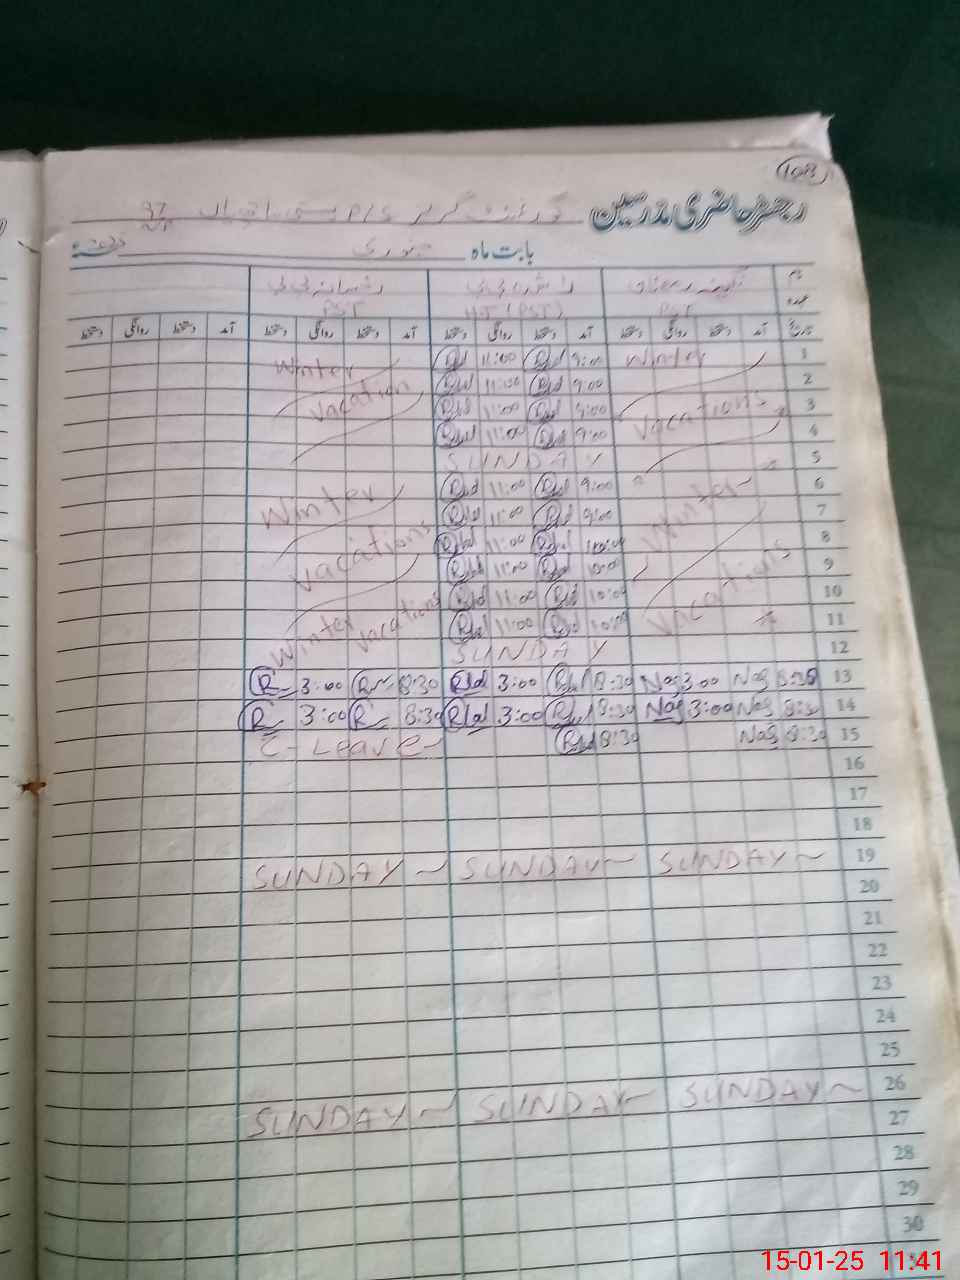 108
رجسٹر حاضری مدرسین گورنمنٹ گرلز P/S بستی
بابت ماہ جنوری 2025ء
نام نگینہ رمضان راشدہ بی بی رخسانہ بی بی
عہدہ PST HT (PST) PST
تاریخ آمد دستخط روانگی دستخط آمد دستخط روانگی دستخط آمد دستخط روانگی دستخط آمد دستخط روانگی دستخط
Winter 11:00 9:00 Winter 1
Vacation 11:00 9:00 2
11:00 9:00 Vacations 3
11:00 9:00 4
SUNDAY 5
Winter 11:00 9:00 Winter 6
11:00 9:00 7
Vacations 11:00 10:00 8
11:00 10:00 Vacations 9
Winter Vacations 11:00 10:00 10
11:00 10:00 11
SUNDAY 12
R 3:00 R 8:30 Rbd 3:00 Rbd 8:30 Nag 3:00 Nag 8:30 13
R 3:00 R 8:30 Rbd 3:00 Rbd 8:30 Nag 3:00 Nag 8:30 14
C-Leave Rbd 8:30 Nag 8:30 15
16
17
18
SUNDAY SUNDAY SUNDAY 19
20
21
22
23
24
25
SUNDAY SUNDAY SUNDAY 26
27
28
29
30
15-01-25 11:41